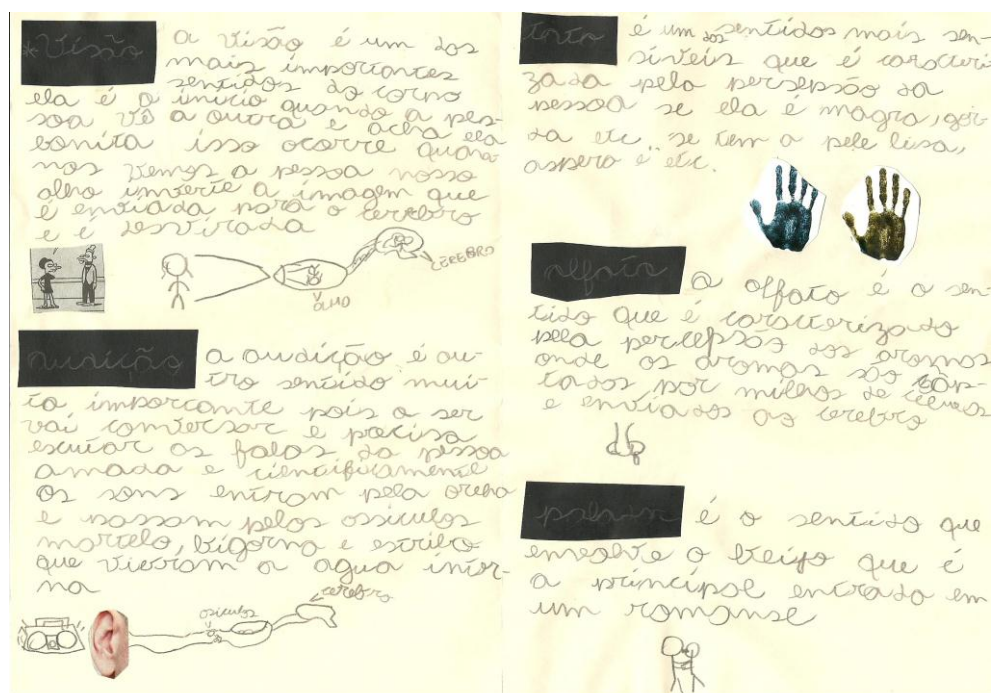 *Visão
a visão é um dos
mais importantes
sentidos do corpo
ela é o início quando a pes-
soa vê a outra e acha ela
bonita isso ocorre quan
nos vemos a pessoa nosso
olho inverte a imagem que
é enviada para o cerebro
e é desvirada
CEREBRO
OLHO
audição
a audição é ou-
tro sentido mui-
to importante pois o ser
vai conversar e precisa
escutar as falas da pessoa
amada e cientificamente
os sons entram pela orelha
e passam pelos ossiculos
martelo, bigorna e estribo
que vibram a agua inter-
na
cerebro
osiculos
tato
é um dos sentidos mais sen-
síveis que é caracteri
zada pela persepsão da
pessoa se ela é magra, gor-
da etc se tem a pele lisa,
aspera é etc.
olfato
O olfato é o sen-
tido que é caracterizado
pela percepsão dos aromas
onde os aromas são cap-
tados por milhos de celulas
e enviados ao cerebro
paladar
é o sentido que
envolve o beijo que é
a principal entrada em
um romanse